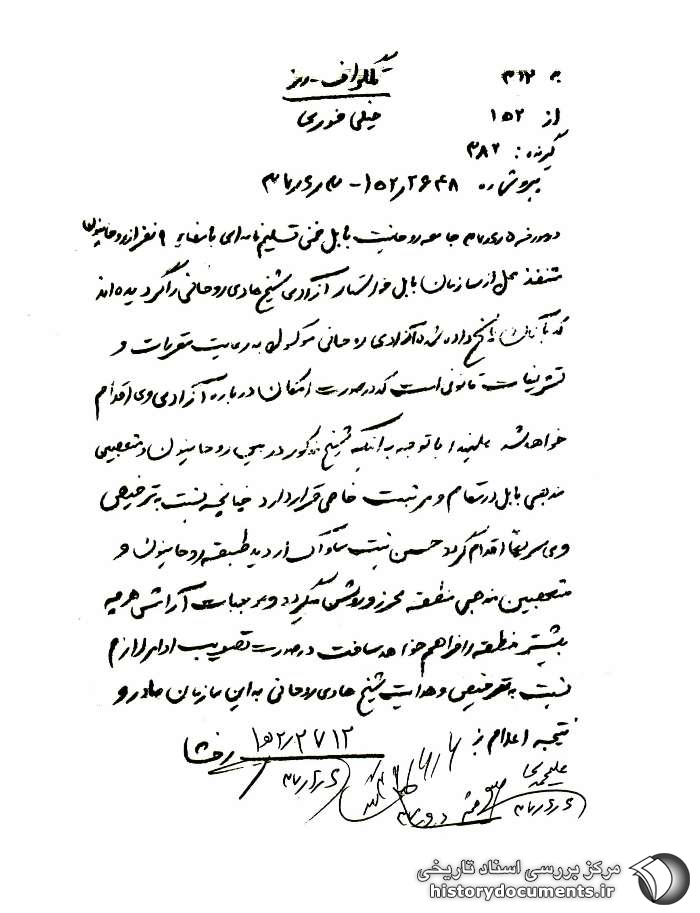 به ۳۱۲
تلگراف - رمز
از ۱۵۲
خیلی فوری
گیرنده: ۳۸۲
پیرو شماره ۱۵۲٫۲۶۴۸ -
در مورخه جامعه روحانیت بابل ضمن تسلیم نامه‌ای بامضاء ۹ نفر از روحانیون
متنفذ محل از سازمان بابل خواستار آزادی شیخ هادی روحانی را گردیده‌اند
که بآنان پاسخ داده شده آزادی روحانی موکول به رعایت مقررات و
تشریفات قانونی است که در صورت امکان درباره آزادی وی اقدام
خواهد شد علیهذا با توجه به اینکه شیخ مذکور در بین روحانیون و متعصبین
مذهبی بابل در مقام و مرتبت خاصی قرار دارد چنانچه نسبت به ترخیص
وی سریعاً اقدام گردد حسن نیت ساواک از دید طبقه روحانیون و
متعصبین مذهبی منطقه محرز و روشن میگردد و موجبات آرامش هرچه
بیشتر منطقه را فراهم خواهد ساخت در صورت تصویب اوامر لازم
نسبت به ترخیص و هدایت شیخ هادی روحانی به این سازمان صادر و
نتیجه اعلام
۱۵۲٫۲۷۱۲
مرکز بررسی اسناد تاریخی
historydocuments.ir